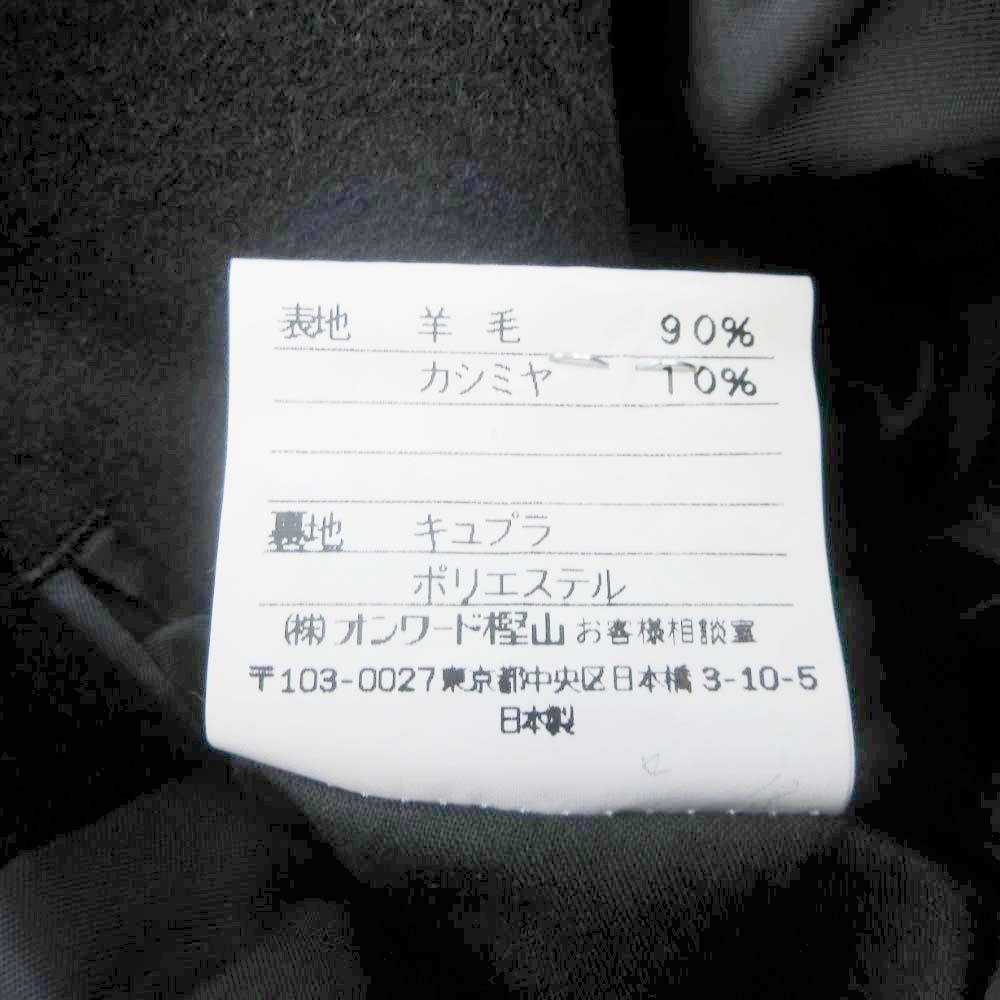 表地 羊毛 90%
カシミヤ 10%
裏地 キュプラ
ポリエステル
(株)オンワード樫山 お客様相談室
〒103-0027東京都中央区日本橋3-10-5
日本製